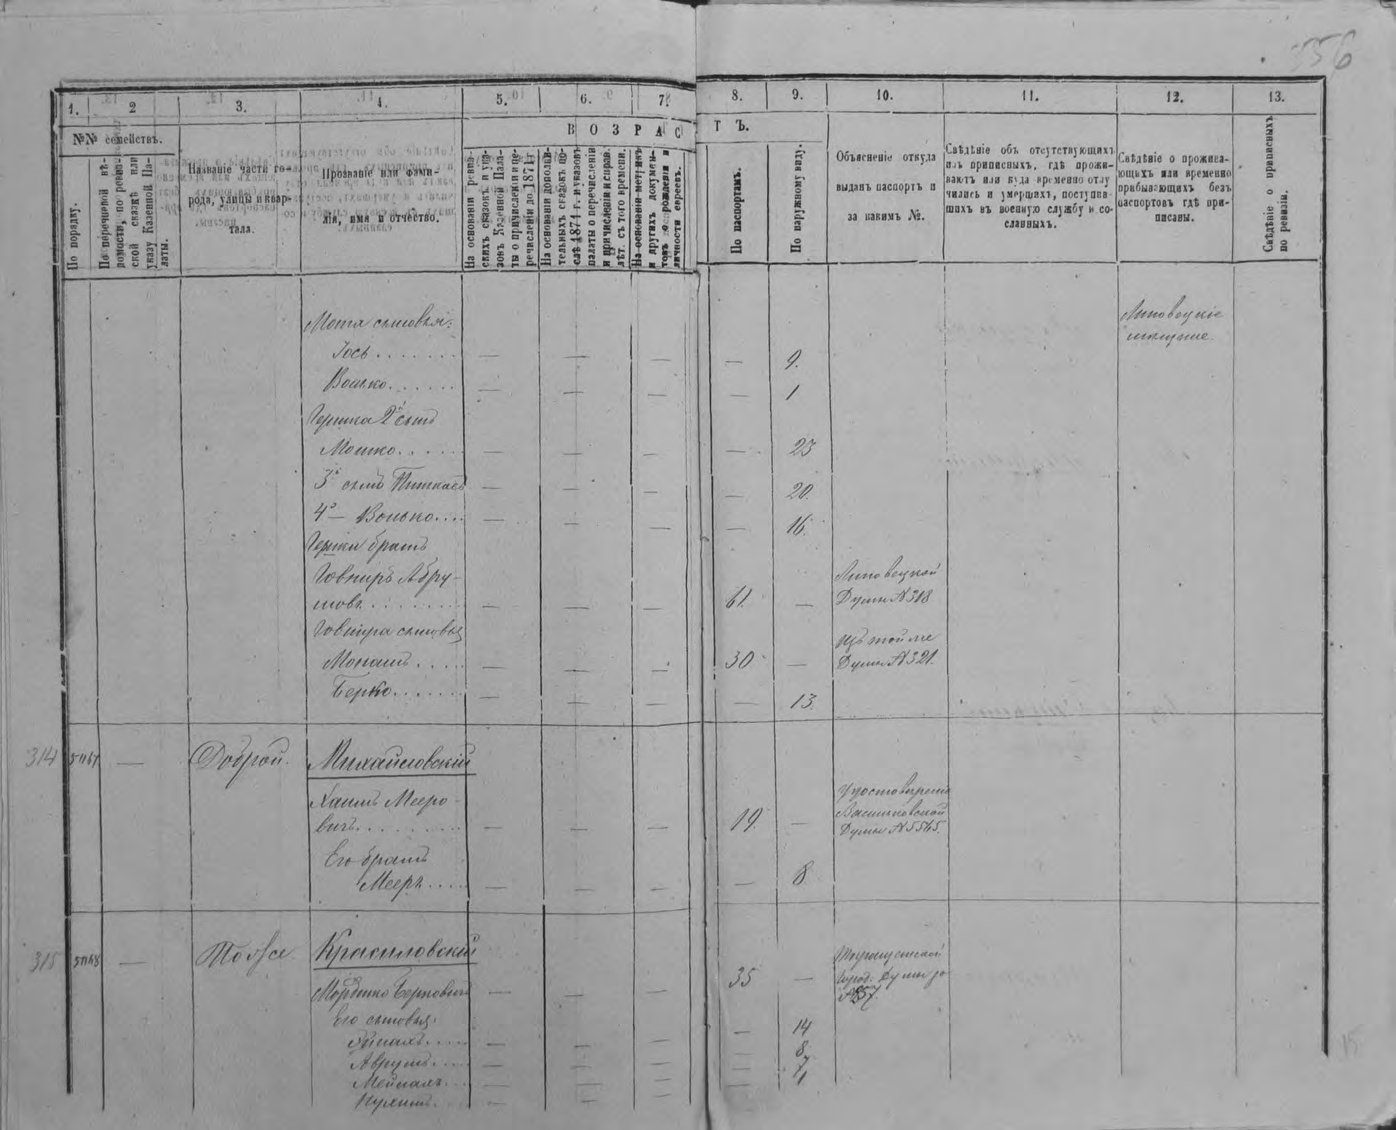 356
1.
2
3.
4.
5.
6.
7.
8.
9.
10.
11.
12.
13.
№№ семействъ.
В О З Р А С Т Ъ.
По порядку.
По перечневой вѣ-
домости, по ревиз-
ской сказкѣ или
указу Казенной Па-
латы.
Названіе части го-
рода, улицы и квар-
тала.
Прозваніе или фами-
лія, имя и отчество.
На основаніи ревиз-
скихъ сказокъ и ука-
зовъ Казенной Пала-
ты о причисленіи и пе-
речисленіи до 1874 г.
На основаніи дополни-
тельныхъ сказокъ по-
слѣ 1874 г. и указовъ
палаты о перечисленіи
и причисленіи и справ.
лѣт. съ того времени.
На основаніи метрикъ
и другихъ докумен-
товъ о рожденіи и
личности евреевъ.
По паспортамъ.
По наружному виду.
Объясненіе откуда
выданъ паспортъ и
за какимъ №.
Свѣдѣніе объ отсутствующихъ
изъ приписныхъ, гдѣ прожи-
ваютъ или куда временно отлу
чились и умершихъ, поступив-
шихъ въ военную службу и со-
сланныхъ.
Свѣдѣніе о прожива-
ющихъ или временно
прибывающихъ безъ
паспортовъ гдѣ при-
писаны.
Свѣдѣніе о приписныхъ
по ревизіи.
Мотя сыновья: Липовецкіе
мещане
Іось — — — — 9.
Волько — — — — 1
Гершка 2й сынъ
Мошко — — — — 23
3й сынъ Пинкасъ — — — — 20.
4й — Волько — — — — 16.
Гершки братъ
Іовниръ Абру- Липовецкой
мовъ — — — 61. — Думы №318
Іовнира сыновья Изъ той же
Монашъ — — — 30 — Думы №321.
Берко — — — — 13.
314 5767 — Доброй. Михайловскій
Хаимъ Мееро- Удостовѣреніе
вичъ — — — 19. — Васильковской
Думы №5565.
Его братъ
Мееръ — — — — 8.
315 5768 — Тоvже. Красиловскій
Мордко Берковичъ — — — 35 — Город. Думы за
№857.
Его сыновья
— — — — 14
Аврумъ — — — — 8.
— — — — 7
— — — 4
15